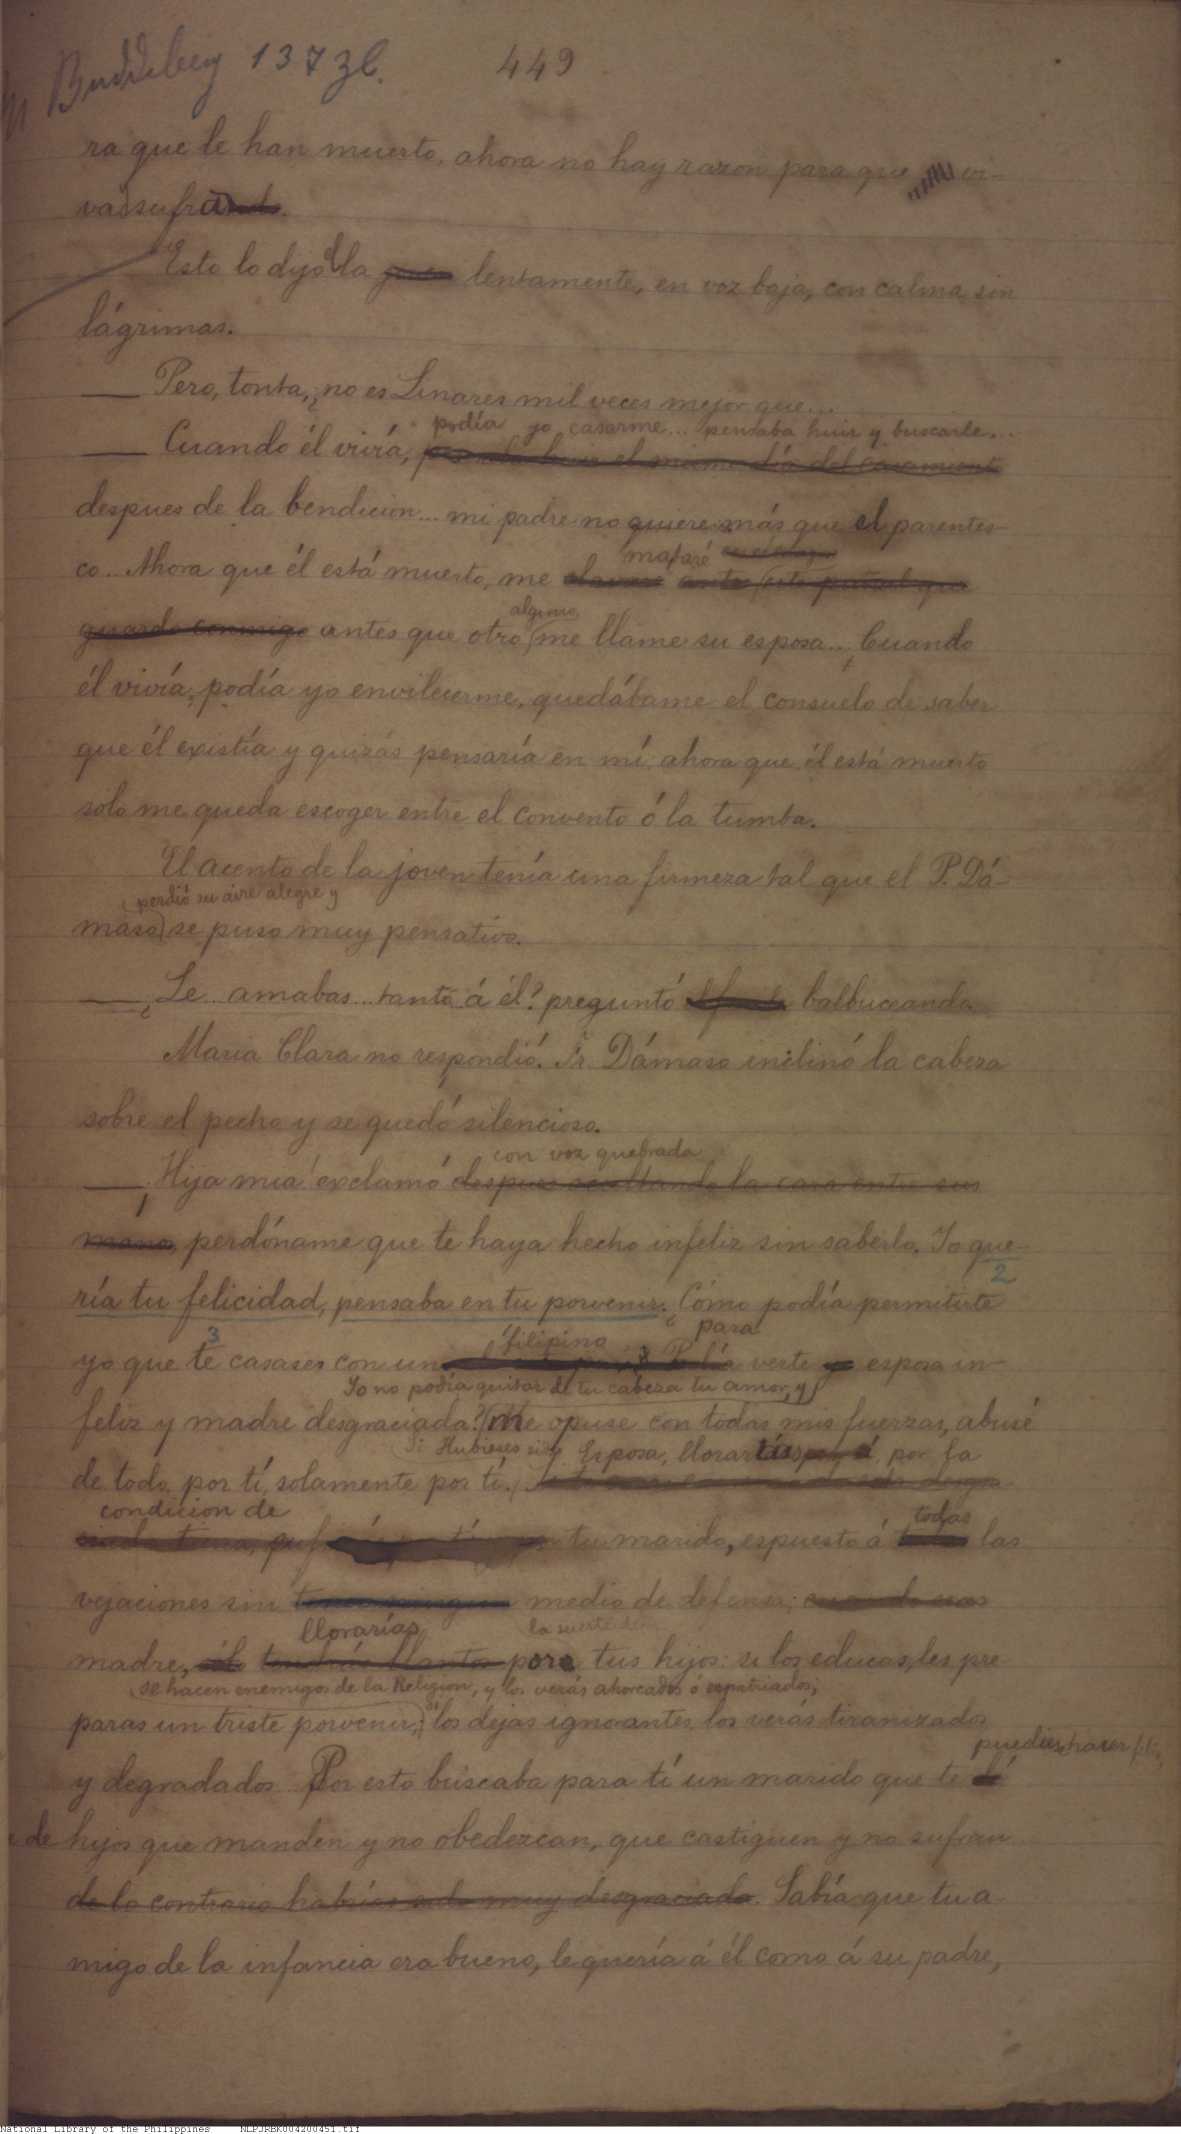 Buddeberg 137 zl.
449
ra que le han muerto, ahora no hay razon para que vi-
va sufra
Esto lo dijo ella lentamente, en voz baja, con calma, sin
lágrimas.
— Pero, tonta, ¿no es Linares mil veces mejor que...
podía yo casarme... pensaba huir y buscarle...
— Cuando él vivía, pensaba huir el mismo día del casamient
despues de la bendicion... mi padre no quiere más que el parentes-
mataré
co... Ahora que él está muerto, me este puñal que
alguno
guardo conmigo antes que otro me llame su esposa... Cuando
él vivía, podía yo envilecerme, quedábame el consuelo de saber
que él existía y quizás pensaría en mí; ahora que él está muerto
solo me queda escoger entre el convento ó la tumba.
El acento de la joven tenía una firmeza tal que el P. Dá-
perdió su aire alegre y
maso se puso muy pensativo.
— ¿Le... amabas... tanto á él? preguntó balbuceando.
Maria Clara no respondió. Fr. Dámaso inclinó la cabeza
sobre el pecho y se quedó silencioso.
con voz quebrada
— ¡Hija mia! exclamó despues ocultando la cara entre sus
manos, perdóname que te haya hecho infeliz sin saberlo. Yo que-
2
ría tu felicidad, pensaba en tu porvenir. ¿Cómo podía permitirte
3 filipino para
yo que te casases con un verte esposa in-
Yo no podía quitar de tu cabeza tu amor, y
feliz y madre desgraciada? Me opuse con todas mis fuerzas, abusé
Si Hubieses sido Esposa, llorarías por la
de todo, por tí, solamente por tí.
condicion de todas
tu marido, espuesto á las
vejaciones sin medio de defensa; cuando seas
llorarías la suerte de
madre, sólo tendrás llantos por tus hijos: si los educas, les pre
se hacen enemigos de la Religion, y los verás ahorcados ó expatriados;
paras un triste porvenir; si los dejas ignorantes, los verás tiranizados
pudiese hacer
y degradados. Por esto buscaba para tí un marido que te dé
de hijos que manden y no obedezcan, que castiguen y no sufran
de lo contrario habrías sido muy desgraciada. Sabía que tu a-
migo de la infancia era bueno, le quería á él como á su padre,
National Library of the Philippines NLPJRBK004200451.tif